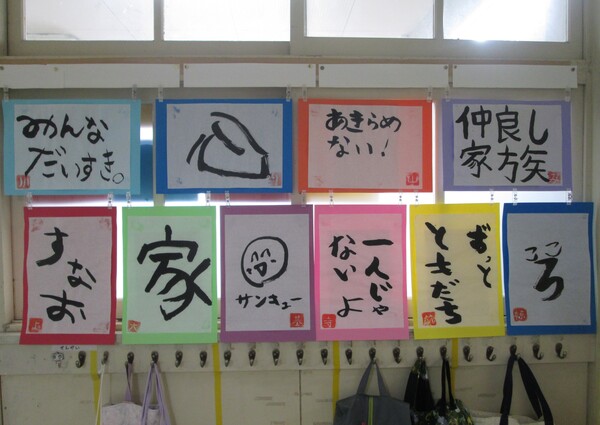 みんな
だいすき。
心
あきらめ
ない！
仲良し
家族
すなお
家
サンキュー
一人じゃ
ないよ
ずっと
ともだち
こころ